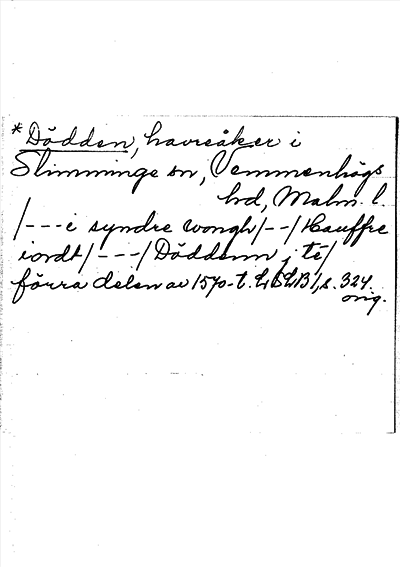 *Dödden, havreåker i
Slimminge sn, Vemmenhögs
hd, Malm. l.
/---i syndre wongh/--/Hauffre
iordt/---/Döddenn j té/
förra delen av 1570-t. LSLB1, s. 324.
orig.